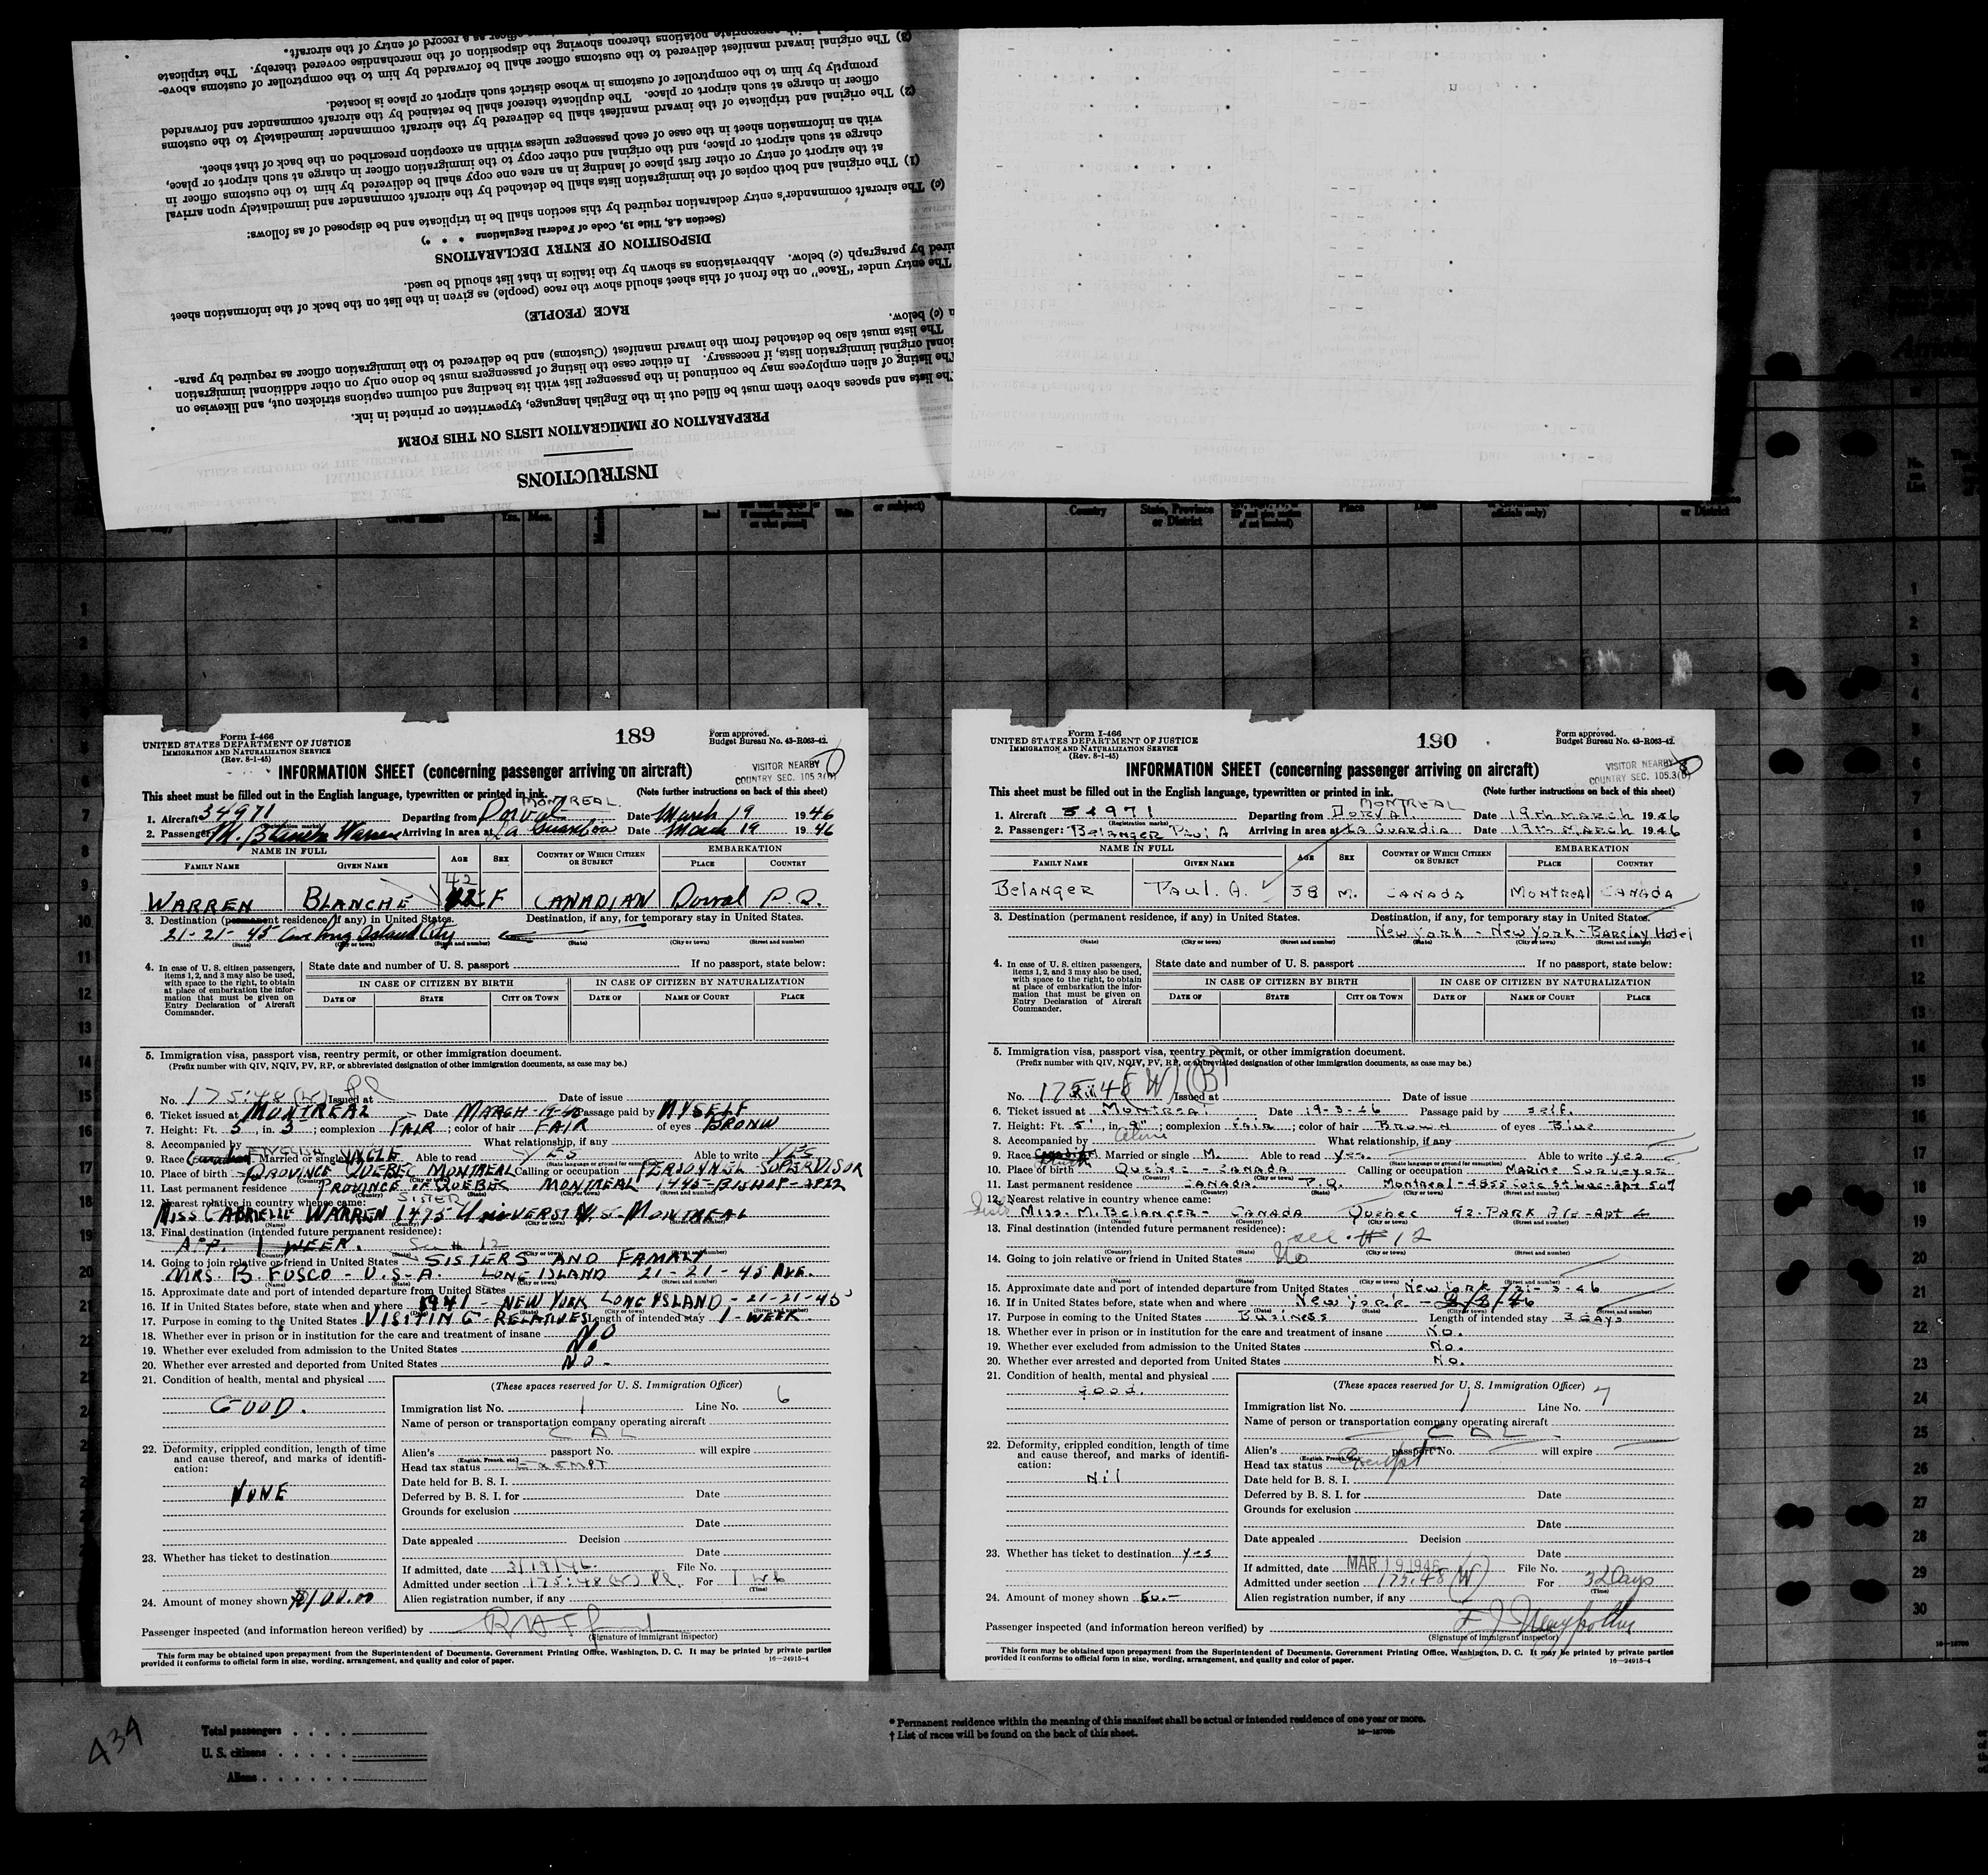 INSTRUCTIONS
PREPARATION OF IMMIGRATION LISTS ON THIS FORM
The lists and spaces above them must be filled out in the English language, typewritten or printed in ink.
The listing of alien employees may be continued in the passenger list with its heading and column captions stricken out, and likewise on
ional original immigration lists, if necessary. In either case the listing of passengers must be done only on other additional immigration
The lists must also be detached from the inward manifest (Customs) and be delivered to the immigration officer as required by para-
h (c) below.
RACE (PEOPLE)
The entry under "Race" on the front of this sheet should show the race (people) as given in the list on the back of the information sheet
ired by paragraph (c) below. Abbreviations as shown by the italics in that list should be used.
DISPOSITION OF ENTRY DECLARATIONS
(Section 4.8, Title 19, Code of Federal Regulations * * *)
(c) The aircraft commander's entry declaration required by this section shall be in triplicate and be disposed of as follows:
(1) The original and both copies of the immigration lists shall be detached by the aircraft commander and immediately upon arrival
at the airport of entry or other first place of landing in an area one copy shall be delivered by him to the customs officer in
charge at such airport or place, and the original and other copy to the immigration officer in charge at such airport or place,
with an information sheet in the case of each passenger unless within an exception prescribed on the back of that sheet.
(2) The original and triplicate of the inward manifest shall be delivered by the aircraft commander immediately to the customs
officer in charge at such airport or place. The duplicate thereof shall be retained by the aircraft commander and forwarded
promptly by him to the comptroller of customs in whose district such airport or place is located.
(3) The original inward manifest delivered to the customs officer shall be forwarded by him to the comptroller of customs above-
with appropriate notations thereon showing the disposition of the merchandise covered thereby. The triplicate
officer as a record of entry of the aircraft.
Form I-466
UNITED STATES DEPARTMENT OF JUSTICE
IMMIGRATION AND NATURALIZATION SERVICE
(Rev. 8-1-45)
189
Form approved.
Budget Bureau No. 43-R063-42.
VISITOR NEARBY
COUNTRY SEC. 105.3(b)
INFORMATION SHEET (concerning passenger arriving on aircraft)
This sheet must be filled out in the English language, typewritten or printed in ink. (Note further instructions on back of this sheet)
MONTREAL
1. Aircraft 34971 Departing from Dorval Date March 19 1946
2. Passenger M. Blanche Warren Arriving in area at La Guardia Date March 19 1946
NAME IN FULL AGE SEX COUNTRY OF WHICH CITIZEN OR SUBJECT EMBARKATION
FAMILY NAME GIVEN NAME PLACE COUNTRY
42
WARREN BLANCHE F CANADIAN Dorval P.Q.
3. Destination (permanent residence, if any) in United States. Destination, if any, for temporary stay in United States.
21-21-45 Ave Long Island City
(State) (City or town) (Street and number) (State) (City or town) (Street and number)
4. In case of U. S. citizen passengers, items 1, 2, and 3 may also be used, with space to the right, to obtain at place of embarkation the information that must be given on Entry Declaration of Aircraft Commander.
State date and number of U. S. passport If no passport, state below:
IN CASE OF CITIZEN BY BIRTH IN CASE OF CITIZEN BY NATURALIZATION
DATE OF STATE CITY OR TOWN DATE OF NAME OF COURT PLACE
5. Immigration visa, passport visa, reentry permit, or other immigration document.
(Prefix number with QIV, NQIV, PV, RP, or abbreviated designation of other immigration documents, as case may be.)
No. 175:48 (W) Pl Issued at Date of issue
6. Ticket issued at MONTREAL Date MARCH-19-46 Passage paid by MYSELF
7. Height: Ft. 5, in. 3; complexion FAIR; color of hair FAIR of eyes BRONW
8. Accompanied by What relationship, if any
9. Race ENGLISH Married or single SINGLE Able to read YES Able to write YES
(State language or ground for exemption)
10. Place of birth PROVINCE QUEBEC MONTREAL Calling or occupation PERSONNEL SUPERVISOR
11. Last permanent residence PROVINCE OF QUEBEC MONTREAL 1445-BISHOP-
12. Nearest relative in country whence came: SISTER
MISS GABRIELLE WARREN 1495 UNIVERSITY ST MONTREAL
13. Final destination (intended future permanent residence):
APP. 1 WEEK. See # 12
14. Going to join relative or friend in United States SISTERS AND FAMALY
MRS. B. FUSCO - U.S.A. LONG ISLAND 21-21-45 AVE.
15. Approximate date and port of intended departure from United States
16. If in United States before, state when and where 1941 - NEW YORK LONG ISLAND - 21-21-45
17. Purpose in coming to the United States VISITING-RELATIVES Length of intended stay 1-WEEK
18. Whether ever in prison or in institution for the care and treatment of insane NO
19. Whether ever excluded from admission to the United States NO
20. Whether ever arrested and deported from United States NO-
21. Condition of health, mental and physical
GOOD.
22. Deformity, crippled condition, length of time and cause thereof, and marks of identification:
NONE
23. Whether has ticket to destination
24. Amount of money shown $100.00
(These spaces reserved for U. S. Immigration Officer)
Immigration list No. 1 Line No. 6
Name of person or transportation company operating aircraft
CAL
Alien's passport No. will expire
(English, French, etc.)
Head tax status EXEMPT
Date held for B. S. I.
Deferred by B. S. I. for Date
Grounds for exclusion
Date
Date appealed Decision
Date
If admitted, date 3/19/46. File No.
Admitted under section 175:48(W) Pl. For 1 Wk
(Time)
Alien registration number, if any
Passenger inspected (and information hereon verified) by
(Signature of immigrant inspector)
This form may be obtained upon prepayment from the Superintendent of Documents, Government Printing Office, Washington, D. C. It may be printed by private parties
provided it conforms to official form in size, wording, arrangement, and quality and color of paper. 16—24915-4
Form I-466
UNITED STATES DEPARTMENT OF JUSTICE
IMMIGRATION AND NATURALIZATION SERVICE
(Rev. 8-1-45)
190
Form approved.
Budget Bureau No. 43-R063-42.
VISITOR NEARBY
COUNTRY SEC. 105.3(b)
INFORMATION SHEET (concerning passenger arriving on aircraft)
This sheet must be filled out in the English language, typewritten or printed in ink. (Note further instructions on back of this sheet)
MONTREAL
1. Aircraft 34971 Departing from DORVAL Date 19th MARCH 1946
(Registration marks)
2. Passenger: Belanger Paul A Arriving in area at La Guardia Date 19th MARCH 1946
NAME IN FULL AGE SEX COUNTRY OF WHICH CITIZEN OR SUBJECT EMBARKATION
FAMILY NAME GIVEN NAME PLACE COUNTRY
Belanger Paul. A. 38 M. CANADA Montreal CANADA
3. Destination (permanent residence, if any) in United States. Destination, if any, for temporary stay in United States.
New York - New York - Barclay Hotel
(State) (City or town) (Street and number) (State) (City or town) (Street and number)
4. In case of U. S. citizen passengers, items 1, 2, and 3 may also be used, with space to the right, to obtain at place of embarkation the information that must be given on Entry Declaration of Aircraft Commander.
State date and number of U. S. passport If no passport, state below:
IN CASE OF CITIZEN BY BIRTH IN CASE OF CITIZEN BY NATURALIZATION
DATE OF STATE CITY OR TOWN DATE OF NAME OF COURT PLACE
5. Immigration visa, passport visa, reentry permit, or other immigration document.
(Prefix number with QIV, NQIV, PV, RP, or abbreviated designation of other immigration documents, as case may be.)
No. 175.48 (W)(B) Issued at Date of issue
6. Ticket issued at Montreal Date 19-3-46 Passage paid by self.
7. Height: Ft. 5', in. 9"; complexion Fair; color of hair Brown of eyes Blue
8. Accompanied by alone What relationship, if any
9. Race Married or single M. Able to read yes. Able to write yes
(State language or ground for exemption)
10. Place of birth Quebec - CANADA Calling or occupation Marine Surveyor.
11. Last permanent residence CANADA. P.Q. Montreal-4855 Cote St Luc-apt 507
12. Nearest relative in country whence came:
Miss. M. Belanger- Canada Quebec 92-PARK Ave-Apt 6
13. Final destination (intended future permanent residence):
see # 12
14. Going to join relative or friend in United States No
15. Approximate date and port of intended departure from United States New York 21-3-46
16. If in United States before, state when and where New York - 2/2/46
17. Purpose in coming to the United States Business Length of intended stay 3 days
18. Whether ever in prison or in institution for the care and treatment of insane No.
19. Whether ever excluded from admission to the United States No.
20. Whether ever arrested and deported from United States No.
21. Condition of health, mental and physical
good.
22. Deformity, crippled condition, length of time and cause thereof, and marks of identification:
Nil
23. Whether has ticket to destination yes
24. Amount of money shown 50.-
(These spaces reserved for U. S. Immigration Officer)
Immigration list No. 1 Line No. 7
Name of person or transportation company operating aircraft
CAL
Alien's passport No. will expire
(English, French, etc.)
Head tax status Exempt
Date held for B. S. I.
Deferred by B. S. I. for Date
Grounds for exclusion
Date
Date appealed Decision
Date
If admitted, date MAR 19 1946 File No.
Admitted under section 175.48 (W) For 3 Days
(Time)
Alien registration number, if any
Passenger inspected (and information hereon verified) by
(Signature of immigrant inspector)
This form may be obtained upon prepayment from the Superintendent of Documents, Government Printing Office, Washington, D. C. It may be printed by private parties
provided it conforms to official form in size, wording, arrangement, and quality and color of paper. 16—24915-4
434
Total passengers
U. S. citizens
Aliens
* Permanent residence within the meaning of this manifest shall be actual or intended residence of one year or more.
† List of races will be found on the back of this sheet.